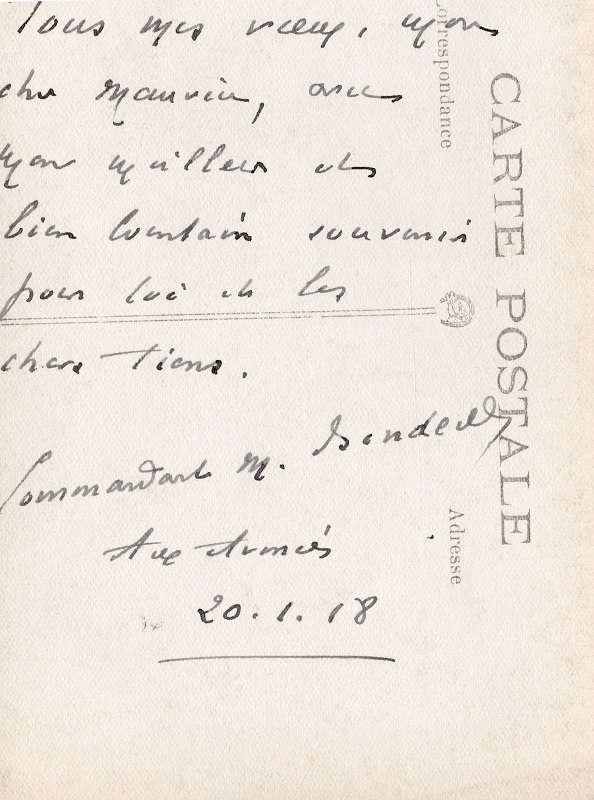 Tous mes vœux, mon
cher Maurice, avec
mon meilleur et
bien lointain souvenir
pour toi et les
chers tiens.
Commandant M.
Aux Armées
20.1.18
CARTE POSTALE
Correspondance
Adresse